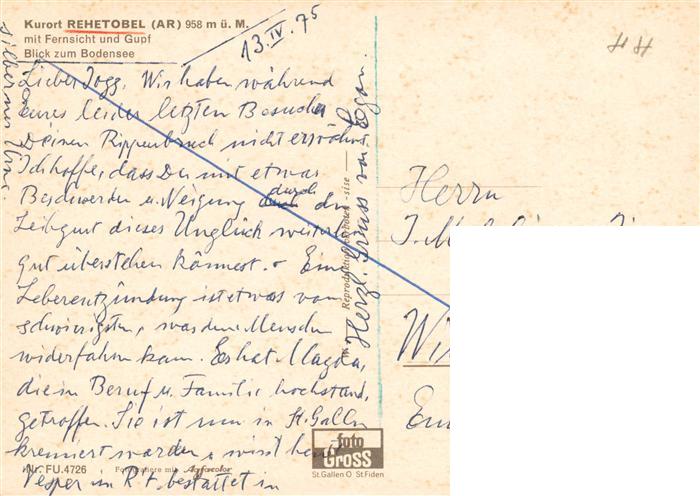 Kurort REHETOBEL (AR) 958 m ü. M.
mit Fernsicht und Gupf
Blick zum Bodensee
13. IV. 75
Lieber Jogg, Wir haben während
eures leider letzten Besuches
Deinen Rippenbruch nicht erwähnt.
Ich hoffe, dass Du mit etwas
Beschwerden u. Neigung durch den
Leibgurt dieses Unglück weiterhin
gut überstehen könnest. Eine
Leberentzündung ist etwas vom
schwierigsten, was dem Menschen
widerfahren kann. Es hat Magda,
die in Beruf u. Familie hochstand,
getroffen. Sie ist nun in St. Gallen
kremiert worden, wird heute
Vesper in R't. bestattet in
silberner Urne.
Herzl. Gruss von
Reproduktion verboten - sise
Herrn
Nr. FU.4726 Fotografiere mit Agfacolor
foto
GROSS
St. Gallen O St. Fiden